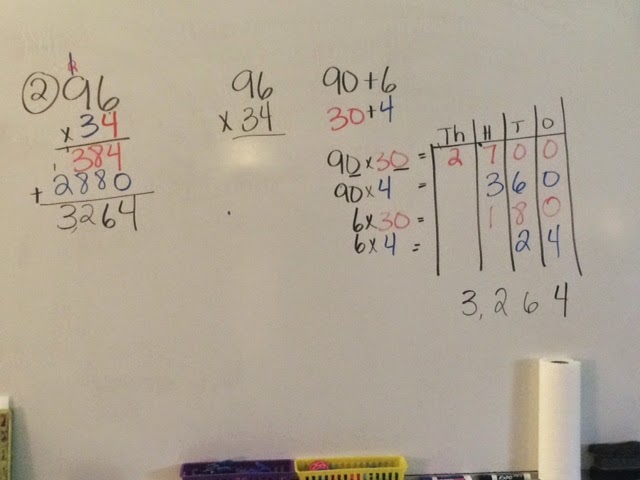 ② 96
x 34
384
+ 2880
3,264
96
x 34
90+6
30+4
Th H T O
90 x 30 = 2 7 0 0
90 x 4 = 3 6 0
6 x 30 = 1 8 0
6 x 4 = 2 4
3, 2 6 4